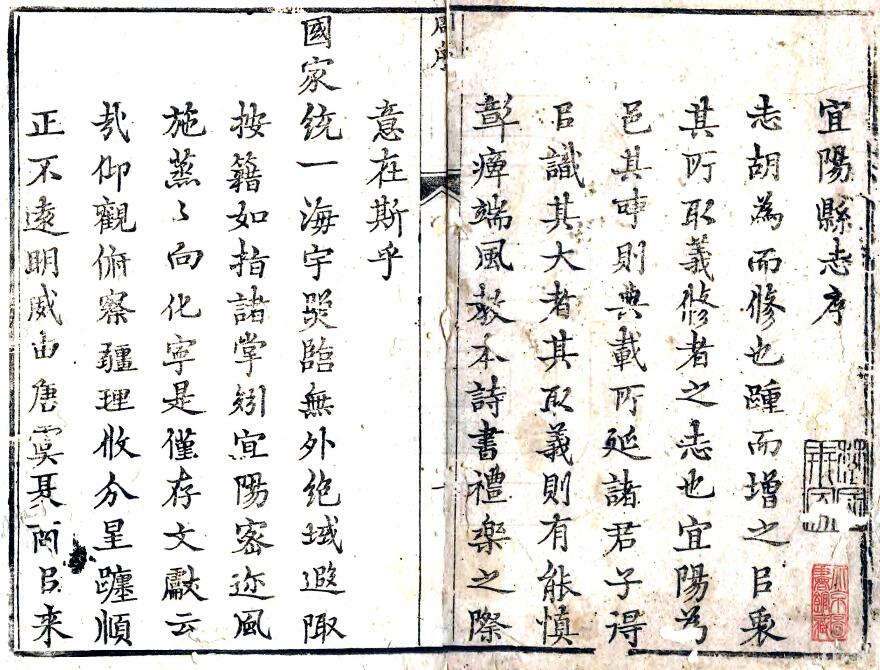 宜陽縣志序
志胡為而修也踵而增之㠯衷
其所取義修者之志也宜陽為
邑其事則典載所延諸君子得
㠯識其大者其取義則有能慎
彰癉端風教本詩書禮樂之際
意在斯乎
國家統一海宇照臨無外絶域遐陬
按籍如指諸掌矧宜陽密邇風
施蒸〻向化寧是僅存文獻云
㢤仰觀俯察疆理收分星躔順
正不遠明威由唐虞夏商㠯来